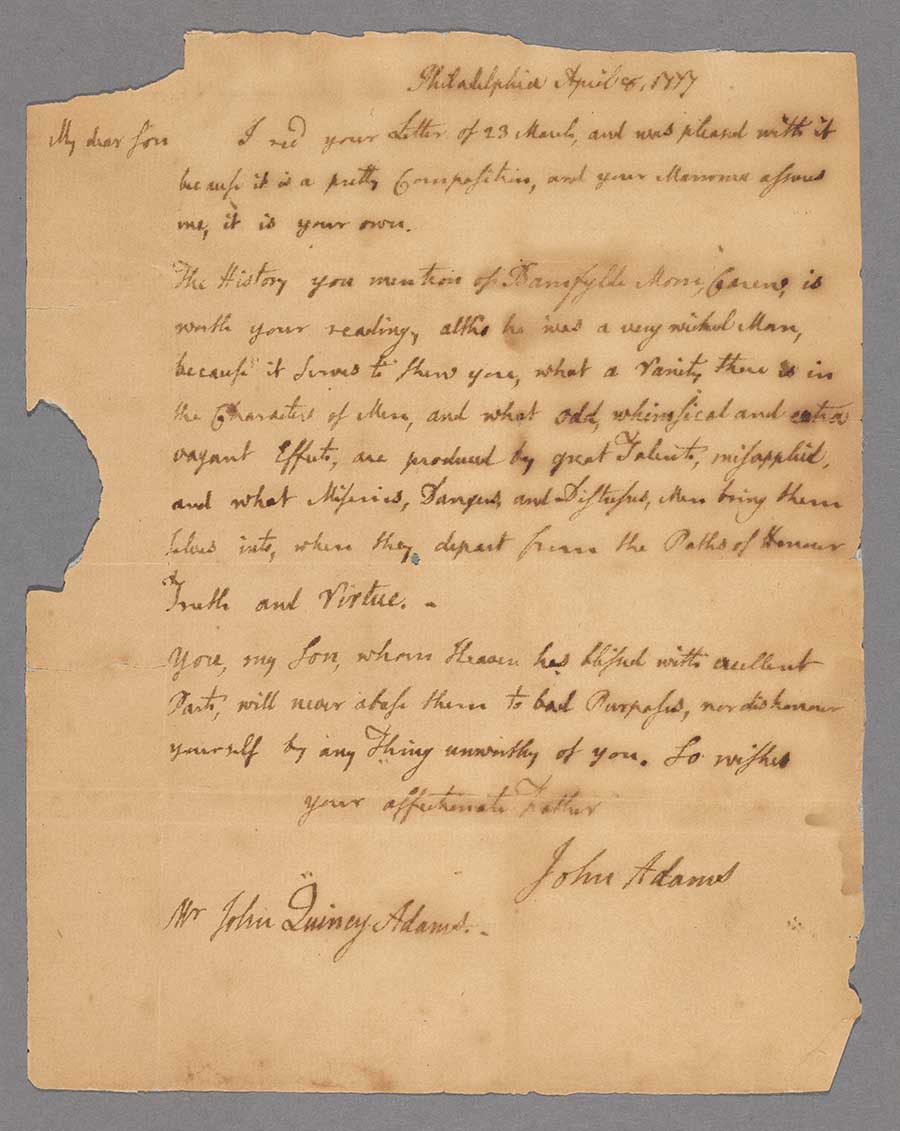 Philadelphia April 8, 1777
My dear Son I recd your Letter of 23 March, and was pleased with it
because it is a pretty Composition, and your Mamma assures
me, it is your own.
The History you mention of Bamfylde Moore Carew, is
worth your reading, altho he was a very wicked Man,
because it serves to shew you, what a Variety there is in
the Characters of Men, and what odd, whimsical and extra
vagant Effects, are produced by great Talents, misapplied,
and what Miseries, Dangers, and Distresses, Men bring them
selves into, when they depart from the Paths of Honour
Truth and Virtue. -
You, my Son, whom Heaven has blessed with excellent
Parts, will never abuse them to bad Purposes, nor dishonour
yourself by any Thing unworthy of you. So wishes
your affectionate Father
John Adams
Mr John Quincy Adams. -